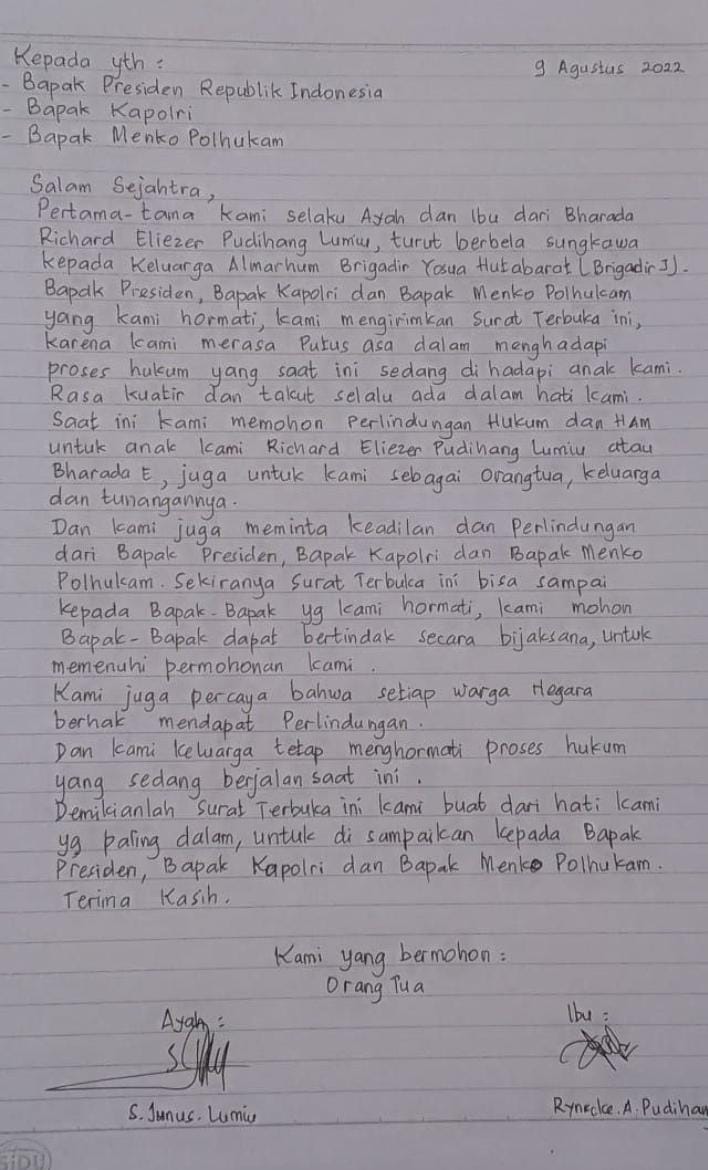 Kepada yth :
9 Agustus 2022
- Bapak Presiden Republik Indonesia
- Bapak Kapolri
- Bapak Menko Polhukam
Salam Sejahtra,
Pertama-tama kami selaku Ayah dan Ibu dari Bharada
Richard Eliezer Pudihang Lumiu, turut berbela sungkawa
kepada Keluarga Almarhum Brigadir Yosua Hutabarat (Brigadir J).
Bapak Presiden, Bapak Kapolri dan Bapak Menko Polhukam
yang kami hormati, kami mengirimkan Surat Terbuka ini,
karena kami merasa Putus asa dalam menghadapi
proses hukum yang saat ini sedang di hadapi anak kami.
Rasa kuatir dan takut selalu ada dalam hati kami.
Saat ini kami memohon Perlindungan Hukum dan HAM
untuk anak kami Richard Eliezer Pudihang Lumiu atau
Bharada E, juga untuk kami sebagai Orangtua, keluarga
dan tunangannya.
Dan kami juga meminta keadilan dan Perlindungan
dari Bapak Presiden, Bapak Kapolri dan Bapak Menko
Polhukam. Sekiranya Surat Terbuka ini bisa sampai
kepada Bapak-Bapak yg kami hormati, kami mohon
Bapak-Bapak dapat bertindak secara bijaksana, untuk
memenuhi permohonan kami.
Kami juga percaya bahwa setiap warga Negara
berhak mendapat Perlindungan.
Dan kami keluarga tetap menghormati proses hukum
yang sedang berjalan saat ini.
Demikianlah Surat Terbuka ini kami buat dari hati kami
yg paling dalam, untuk di sampaikan kepada Bapak
Presiden, Bapak Kapolri dan Bapak Menko Polhukam.
Terima Kasih.
Kami yang bermohon :
Orang Tua
Ayah :
Ibu :
S. Junus. Lumiu
Rynecke. A. Pudihan
SIDU